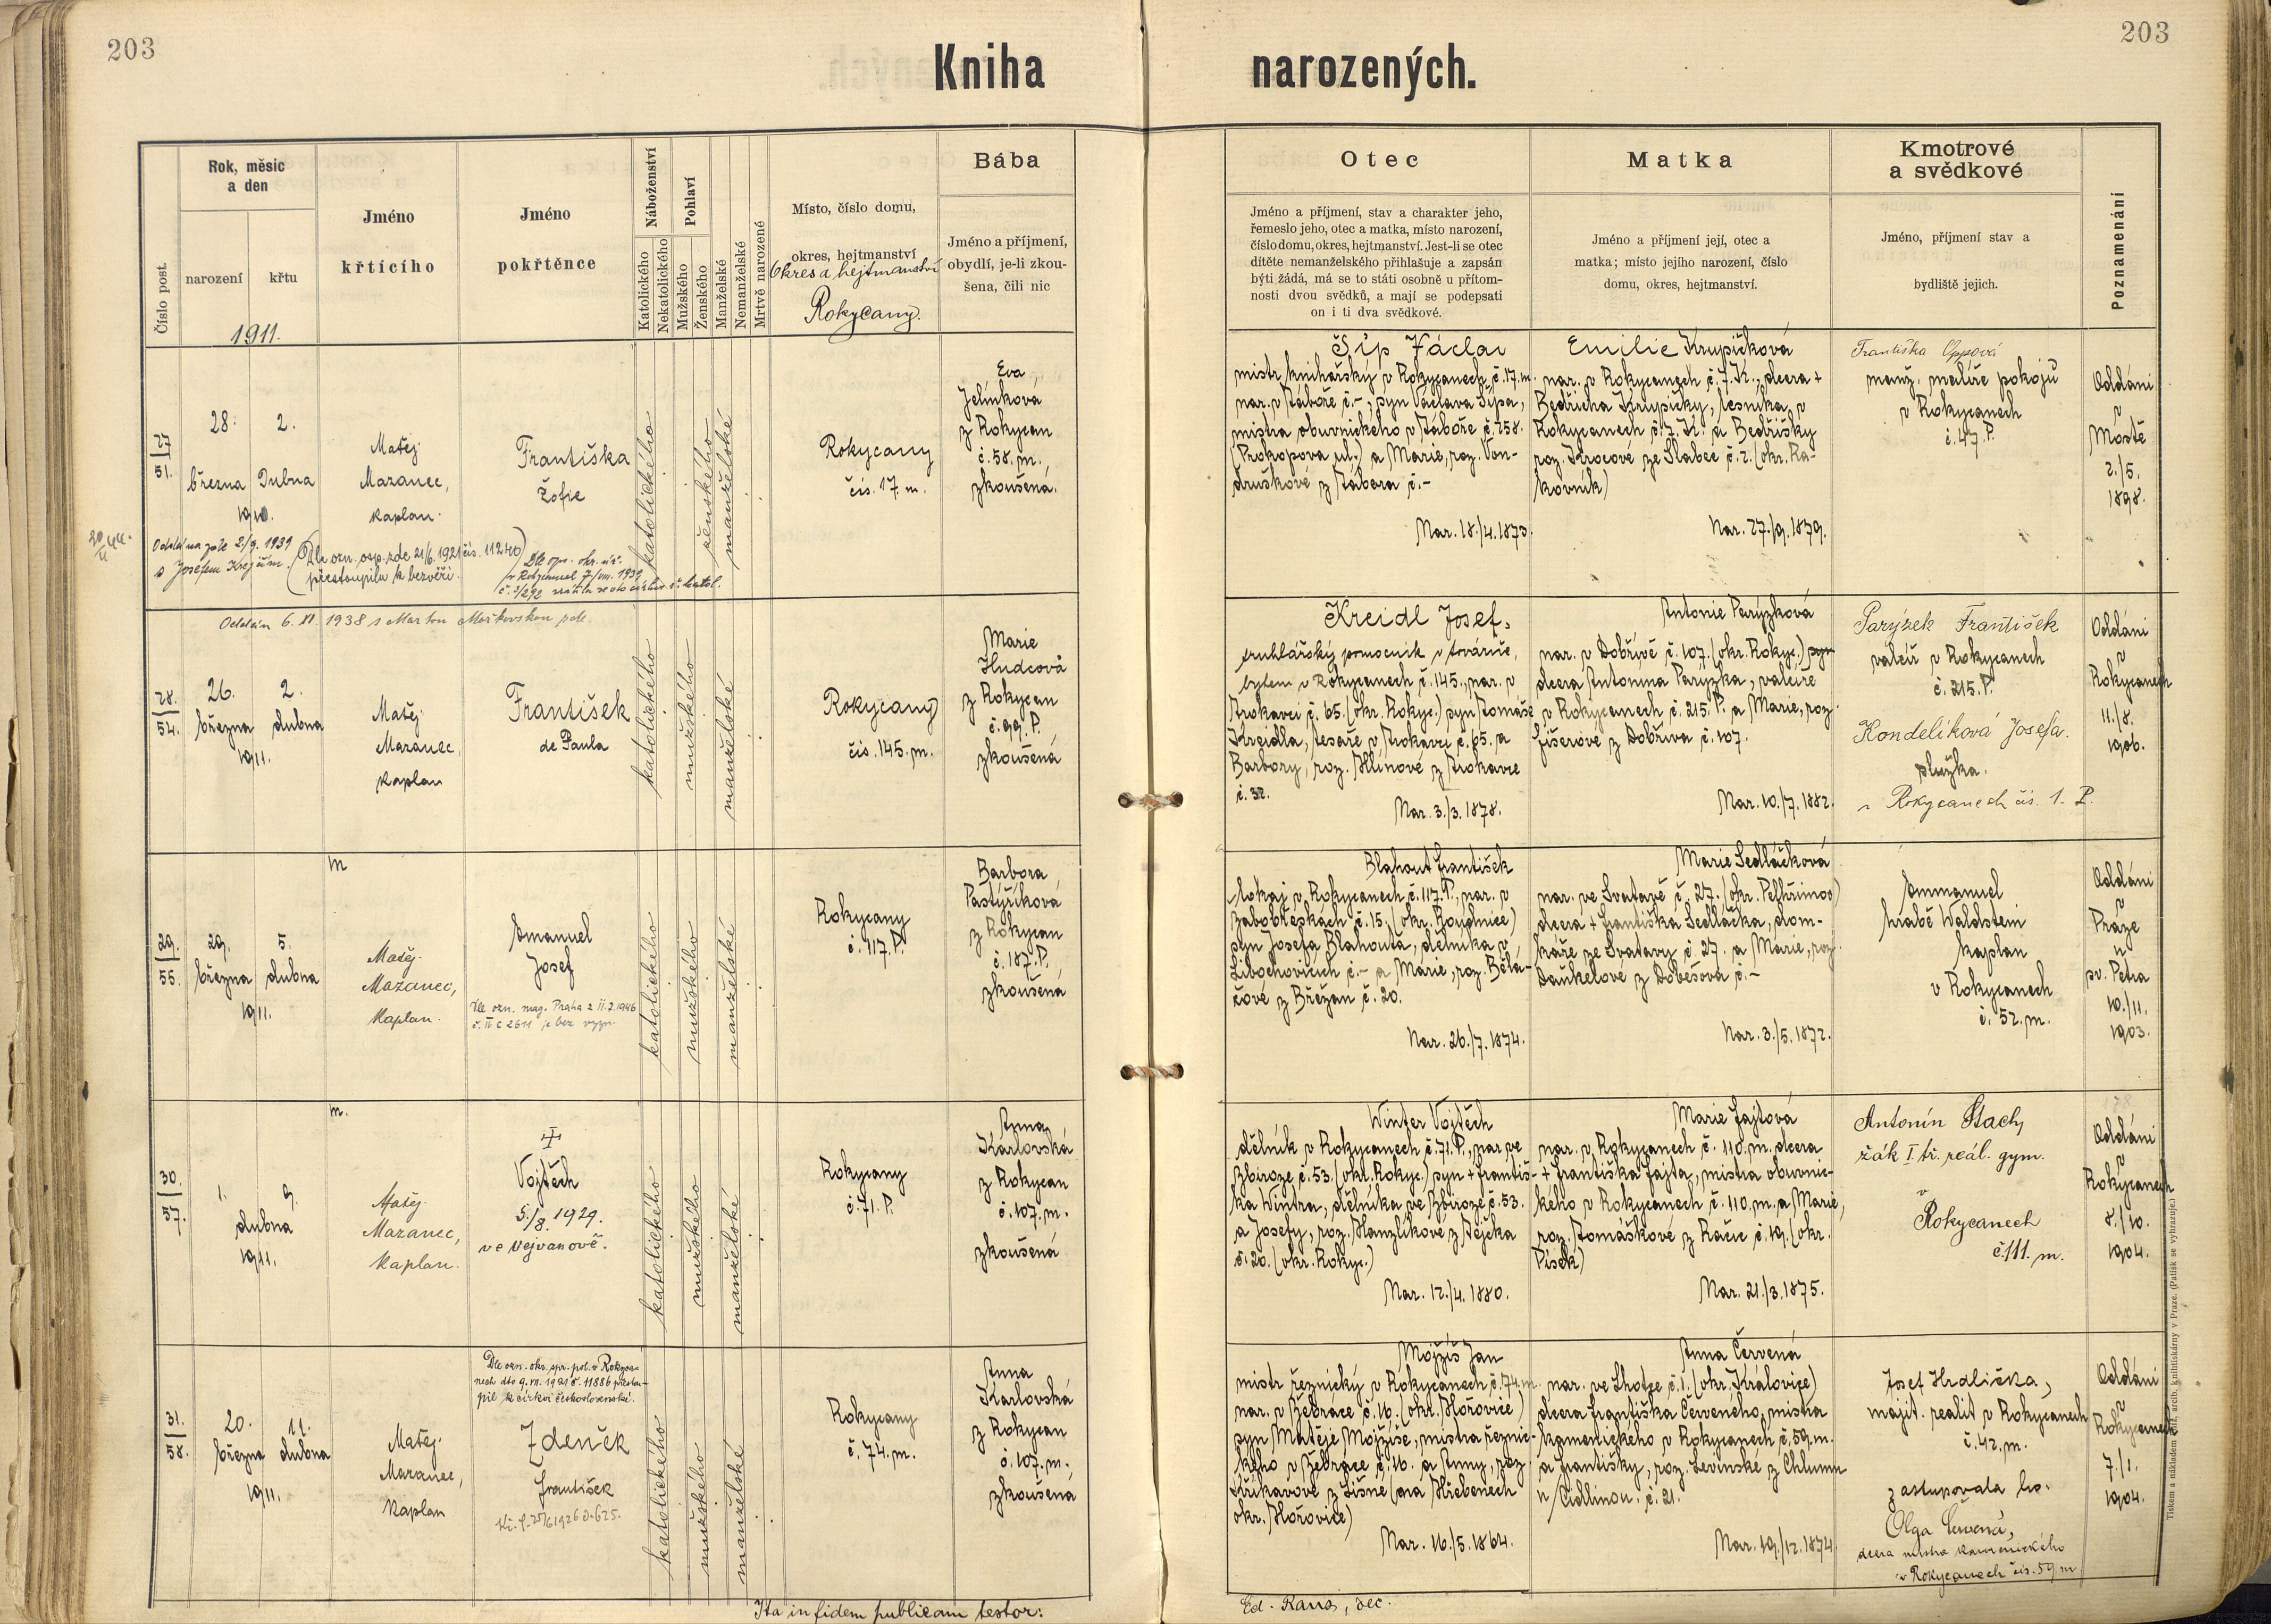 203
203
Kniha narozených.
Číslo post.
Rok, měsíc
a den
narození
křtu
1911.
Jméno
křtícího
Jméno
pokřtěnce
Náboženství
Katolického
Nekatolického
Pohlaví
Mužského
Ženského
Manželské
Nemanželské
Mrtvě narozené
Místo, číslo domu,
okres, hejtmanství
Okres a hejtmanství
Rokycany.
Bába
Jméno a příjmení,
obydlí, je-li zkou-
šena, čili nic
Otec
Jméno a příjmení, stav a charakter jeho,
řemeslo jeho, otec a matka, místo narození,
číslo domu, okres, hejtmanství. Jest-li se otec
dítěte nemanželského přihlašuje a zapsán
býti žádá, má se to státi osobně u přítom-
nosti dvou svědků, a mají se podepsati
on i ti dva svědkové.
Matka
Jméno a příjmení její, otec a
matka; místo jejího narození, číslo
domu, okres, hejtmanství.
Kmotrové
a svědkové
Jméno, příjmení stav a
bydliště jejich.
Poznamenání
27
51.
28. 2.
března Dubna
Matěj
Mazanec,
kaplan.
Františka
Žofie
katolického
ženského
manželské
Rokycany
čís. 17 m.
Eva
Jelínková
z Rokycan
č. 58. m.
zkoušená.
Oddána zde 2/9. 1939
s Josefem Krejčím.
(Dle ozn. osp. zde 21/6. 1921 čís. 11240)
přestoupila k bezvěří.
Šíp Václav
mistr knihařský v Rokycanech č. 17. m.
nar. v Táboře č. -, syn Václava Šípa,
mistra obuvnického v Táboře č. 258.
(Prokopova ul.) a Marie, roz. Von-
druškové z Tábora č. -
Nar. 18./4. 1873.
Emilie Krupičková
nar. v Rokycanech č. 7. K., dcera +
Bedřicha Krupičky, lesníka v
Rokycanech č. 7. K. a Bedřišky
roz. Krocové ze Slabec č. 2. (okr. Ra-
kovník)
Nar. 27./9. 1879.
Františka Oppová
manž. malíře pokojů
v Rokycanech
č. 47. P.
Oddáni
v
Mostě
2./5.
1898.
Oddán 6. XI. 1938 s Martou Moškovskou zde.
28.
54.
26. 2.
března dubna
1911.
Matěj
Mazanec,
kaplan
František
de Paula
katolického
mužského
manželské
Rokycany
čís. 145. m.
Marie
Hudcová
z Rokycan
č. 99. P.
zkoušená
Kreidl Josef,
truhlářský pomocník v továrně,
bytem v Rokycanech č. 145., nar. v
Strokavci č. 65. (okr. Rokyc.) syn Tomáše
Kreidla, tesaře v Štokavci č. 65. a
Barbory, roz. Hlínové z Štokavce
č. 32.
Nar. 3./3. 1878.
Antonie Parýzková
nar. v Dobřívě č. 107. (okr. Rokyc.) syn
dcera Antonína Paryzka, valcíře
v Rokycanech č. 215. P. a Marie, roz.
Fišerové z Dobříva č. 107.
Nar. 10./7. 1882.
Parýzek František
valcíř v Rokycanech
č. 215. P.
Kondelíková Josefa.
služka.
v Rokycanech čís. 1. P.
Oddáni
v
Rokycanech
11./8.
1906.
29.
55.
m
29. 5.
března dubna
1911.
Matěj
Mazanec,
kaplan.
Emanuel
Josef
Dle ozn. mag. Praha z 11.7.1946
č. IV C 2611 je bez vyzn.
katolického
mužského
manželské
Rokycany
č. 117. P.
Barbora
Pastýříková
z Rokycan
č. 187. P.
zkoušená
Blahout František
lokaj v Rokycanech č. 117. P., nar. v
Žabovřeskách č. 15. (okr. Roudnice)
syn Josefa Blahouta, dělníka v
Libochovicích č. - a Marie, roz. Bělá-
čové z Břežan č. 20.
Nar. 26./7. 1874.
Marie Sedláčková
nar. ve Svatavě č. 27. (okr. Pelhřimov)
dcera + Františka Sedláčka, dom-
káře ze Svatavy č. 27. a Marie, roz.
Daňkelové z Dobešova č. -
Nar. 3./5. 1872.
Emmanuel
hrabě Waldstein
kaplan
v Rokycanech
č. 52. m.
Oddáni
v
Praze
u
sv. Petra
10./11.
1903.
30.
57.
m.
1. 9.
dubna
1911.
Matěj
Mazanec,
kaplan.
Vojtěch
5./8. 1929.
ve Vejvanově.
katolického
mužského
manželské
Rokycany
č. 71. P.
Anna
Karlovská
z Rokycan
č. 107. m.
zkoušená
Winter Vojtěch
dělník v Rokycanech č. 71. P., nar. ve
Zbiroze č. 53. (okr. Rokyc.) syn + Františ-
ka Wintra, dělníka ve Zbiroze č. 53.
a Josefy, roz. Hanzlíkové z Těčka
č. 20. (okr. Rokyc.)
Nar. 12./4. 1880.
Marie Fajtová
nar. v Rokycanech č. 110. m. dcera
+ Františka Fajta, mistra obuvnic-
kého v Rokycanech č. 110. m. a Marie,
roz. Tomáškové z Račic č. 19. (okr.
Písek)
Nar. 21./3. 1875.
Antonín Stach,
žák I tř. reál. gym.
v
Rokycanech
č. 111. m.
Oddáni
v
Rokycanech
8./10.
1904.
31.
58.
20. 11.
března dubna
1911.
Matěj
Mazanec,
kaplan
Dle ozn. okr. spr. pol. v Rokyca-
nech dto 9. VII. 1921 č. 11886 přestou-
pil k církvi československé.
Zdeněk
František
katolického
mužského
manželské
Rokycany
č. 74. m.
Anna
Karlovská
z Rokycan
č. 107. m.
zkoušená
Mojžíš Jan
mistr řeznický v Rokycanech č. 74. m.
nar. v Žebráce č. 16. (okr. Hořovice)
syn Matěje Mojžíše, mistra řeznic-
kého v Žebráce č. 16. a Anny, roz.
Křikavové z Lišné (na Hřebenech
okr. Hořovice)
Nar. 16./5. 1864.
Anna Červená
nar. ve Lhotce č. 1. (okr. Královice)
dcera Františka Červeného, mistra
kamenického v Rokycanech č. 59. m.
a Františky, roz. Levinské z Chlumu
n Cidlinou. č. 21.
Nar. 19./12. 1874.
Josef Hrdlička,
majit. realit v Rokycanech
č. 42. m.
zastupovala ho.
Olga Červená,
dcera mistra kamenického
v Rokycanech čís. 59 m
Oddáni
v
Rokycanech
7./1.
1904.
Ita in fidem publicam testor: